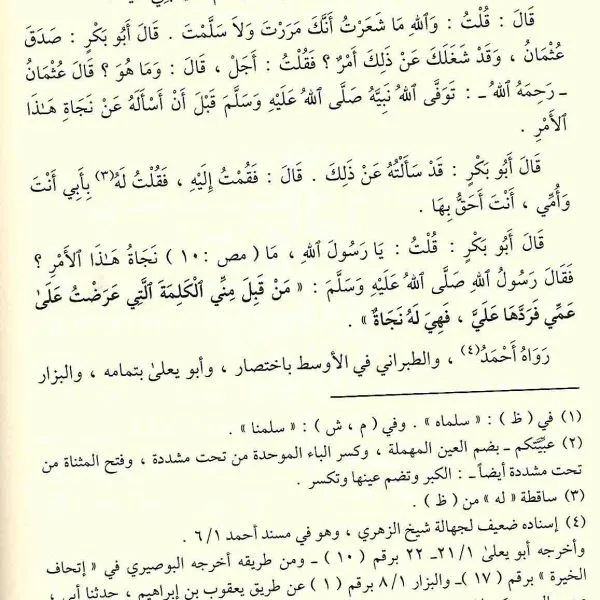 قَالَ : قُلْتُ : وَٱللهِ مَا شَعَرْتُ أَنَّكَ مَرَرْتَ وَلاَ سَلَّمْتَ . قَالَ أَبُو بَكْرٍ : صَدَقَ
عُثْمَانُ ، وَقَدْ شَغَلَكَ عَنْ ذَلِكَ أَمْرٌ ؟ فَقُلْتُ : أَجَلْ ، قَالَ : وَمَا هُوَ ؟ قَالَ عُثْمَانُ
ـ رَحِمَهُ ٱللهُ ـ : تَوَفَّى ٱللهُ نَبِيَّهُ صَلَّى ٱللهُ عَلَيْهِ وَسَلَّمَ قَبْلَ أَنْ أَسْأَلَهُ عَنْ نَجَاةِ هَـٰذَا
ٱلأَمْرِ .
قَالَ أَبُو بَكْرٍ : قَدْ سَأَلْتُهُ عَنْ ذَلِكَ . قَالَ : فَقُمْتُ إِلَيْهِ ، فَقُلْتُ لَهُ(٣) بِأَبِي أَنْتَ
وَأُمِّي ، أَنْتَ أَحَقُّ بِهَا .
قَالَ أَبُو بَكْرٍ : قُلْتُ : يَا رَسُولَ ٱللهِ ، مَا ( مص : ١٠ ) نَجَاةُ هَـٰذَا ٱلأَمْرِ ؟
فَقَالَ رَسُولُ ٱللهِ صَلَّى ٱللهُ عَلَيْهِ وَسَلَّمَ : « مَنْ قَبِلَ مِنِّي ٱلْكَلِمَةَ ٱلَّتِي عَرَضْتُ عَلَىٰ
عَمِّي فَرَدَّهَا عَلَيَّ ، فَهِيَ لَهُ نَجَاةٌ » .
رَوَاهُ أَحْمَدُ(٤) ، والطبراني في الأوسط باختصار ، وأبو يعلىٰ بتمامه ، والبزار
(١) في ( ظ ) : « سلماه » . وفي ( م ، ش ) : « سلمنا » .
(٢) عبيّتكم ـ بضم العين المهملة ، وكسر الباء الموحدة من تحت مشددة ، وفتح المثناة من
تحت مشددة أيضاً ـ : الكبر وتضم عينها وتكسر .
(٣) ساقطة « له » من ( ظ ) .
(٤) إسناده ضعيف لجهالة شيخ الزهري ، وهو في مسند أحمد ٦/١ .
وأخرجه أبو يعلىٰ ٢١/١ـ ٢٢ برقم ( ١٠ ) ـ ومن طريقه أخرجه البوصيري في « إتحاف
الخيرة » برقم ( ١٧ )ـ والبزار ٨/١ برقم ( ١ ) عن طريق يعقوب بن إبراهيم ، حدثنا أبي ،